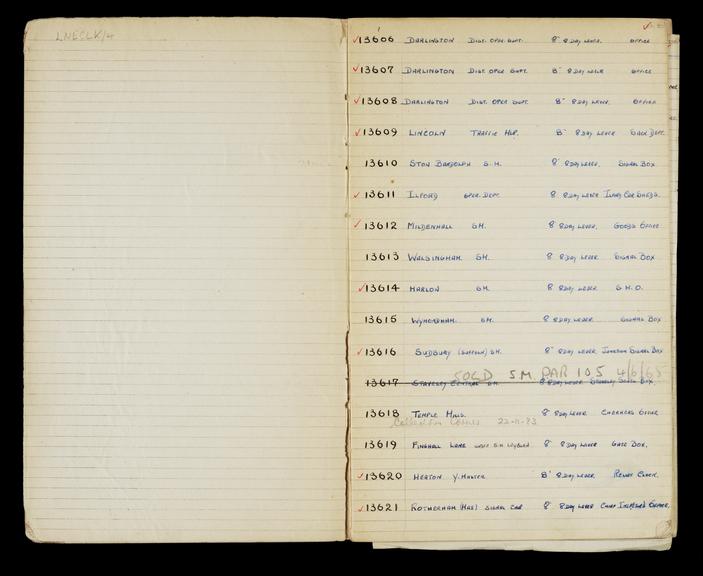 LNECLK/4
13606 DARLINGTON DIST. OPER DEPT. 8" 8 DAY LEVER. OFFICE
13607 DARLINGTON DIST OPER DEPT. 8" 8 DAY LEVER OFFICE
13608 DARLINGTON DIST. OPER DEPT. 8" 8 DAY LEVER. OFFICE
13609 LINCOLN TRAFFIC 8" 8 DAY LEVER DEPT.
13610 STOW BARDOLPH S.M. 8" 8 DAY LEVER. SIGNAL BOX
13611 ILFORD OPER. DEPT. 8" 8 DAY LEVER ILFORD CAR SHEDS.
13612 MILDENHALL S.M. 8" 8 DAY LEVER. GOODS OFFICE
13613 WALSINGHAM. S.M. 8" 8 DAY LEVER. SIGNAL BOX
13614 HARLOW S.M. 8" 8 DAY LEVER S.M.O.
13615 WYMONDHAM. S.M. 8" 8 DAY LEVER SIGNAL BOX
13616 SUDBURY (SUFFOLK) S.M. 8" 8 DAY LEVER. JUNCTION SIGNAL BOX
SOLD S.M. PAR 105 4/6/65
13617 STAVELEY CENTRAL S.M. 8" 8 DAY LEVER STAVELEY BOX
13618 TEMPLE MILLS. 8" 8 DAY LEVER OFFICE
22-11-83
13619 FINGHALL LANE S.M. LEYBURN 8" 8 DAY LEVER GATE BOX.
13620 HEATON Y. MASTER 8" 8 DAY LEVER RELAY CLOCK.
13621 ROTHERHAM (MAS) SIGNAL 8" 8 DAY LEVER CHIEF INSPECTORS OFFICE.